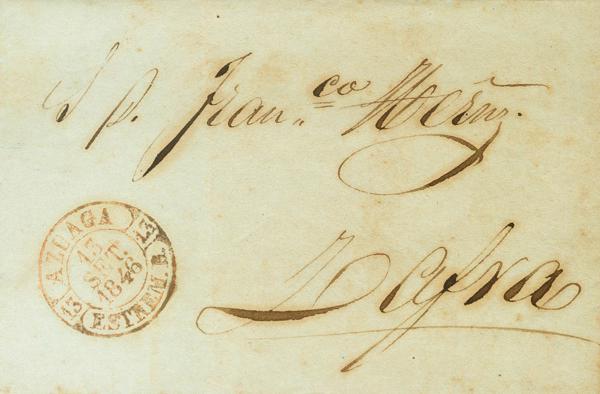 S p. Fran.co
Zafra
AZUAGA
13
13
SET.
1846
13
ESTREM. B.